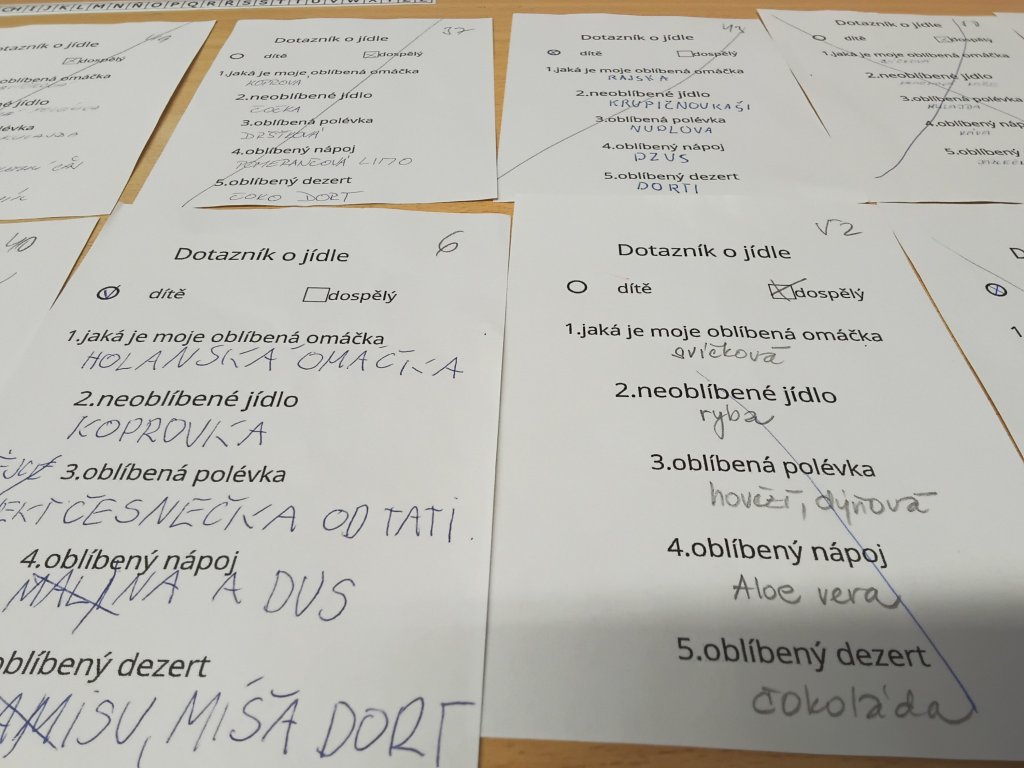 CH I J K L M N Ň O P Q R Ř S Š T
Dotazník o jídle
37
dítě dospělý
1.jaká je moje oblíbená omáčka
KOPROVÁ
2.neoblíbené jídlo
ČOČKA
3.oblíbená polévka
DRŠTKOVÁ
4.oblíbený nápoj
POMERANČOVÁ LIMO
5.oblíbený dezert
ČOKO DORT
Dotazník o jídle
dítě dospělý
1.jaká je moje oblíbená omáčka
RAJSKÁ
2.neoblíbené jídlo
KRUPIČNOUKAŠI
3.oblíbená polévka
NUDLOVA
4.oblíbený nápoj
DZUS
5.oblíbený dezert
DORTI
Dotazník o jídle
dítě dospělý
1.jaká je moje oblíbená omáčka
2.neoblíbené jídlo
3.oblíbená polévka
KULAJDA
4.oblíbený nápoj
KÁVA
5.oblíbený
dospělý
oblíbená omáčka
jídlo
polévka
KULAJDA
40
6
Dotazník o jídle
dítě dospělý
1.jaká je moje oblíbená omáčka
HOLANSKÁ OMAČKA
2.neoblíbené jídlo
KOPROVKA
3.oblíbená polévka
ČESNEČKA OD TATI.
4.oblíbený nápoj
MALINA A DUS
oblíbený dezert
AMISU, MÍŠA DORT
V2
Dotazník o jídle
dítě dospělý
1.jaká je moje oblíbená omáčka
svíčková
2.neoblíbené jídlo
ryba
3.oblíbená polévka
hovězí, dýňová
4.oblíbený nápoj
Aloe vera
5.oblíbený dezert
čokoláda